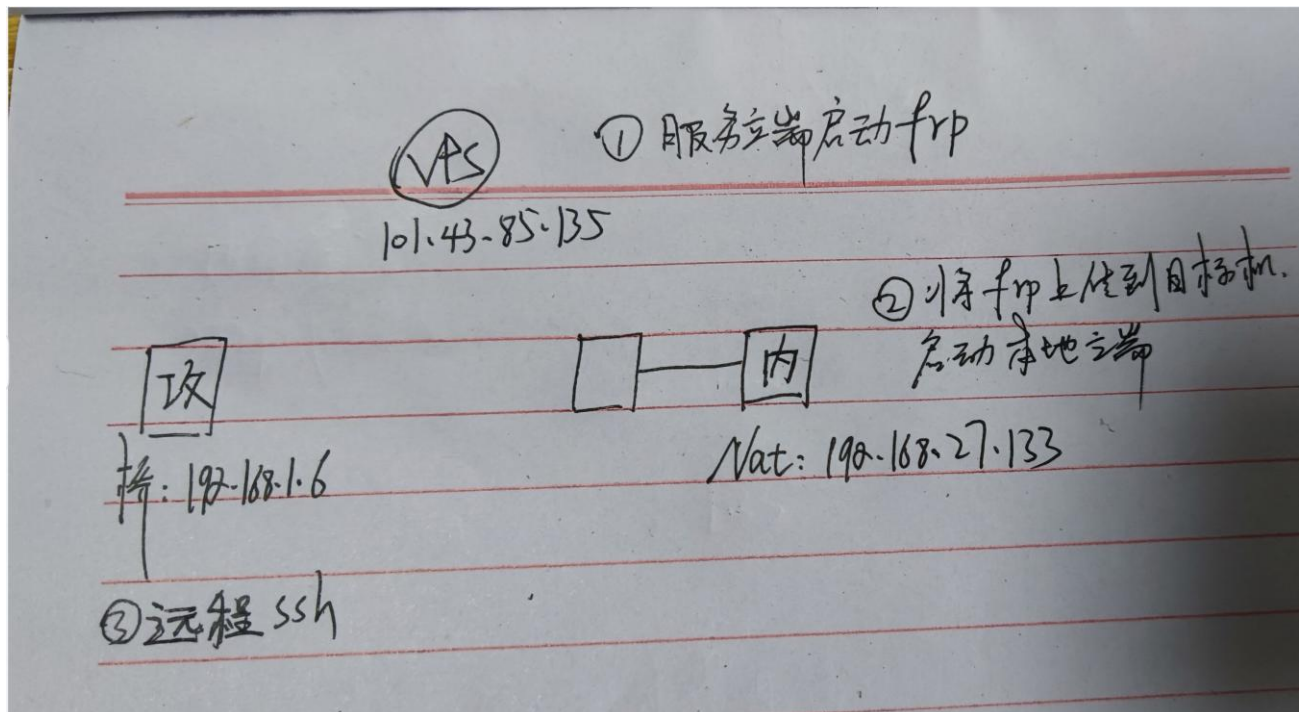 VPS
①服务端启动frp
101.43.85.135
②将frp上传到目标机.
启动本地端
攻
内
桥:192.168.1.6
Nat:192.168.27.133
③远程ssh